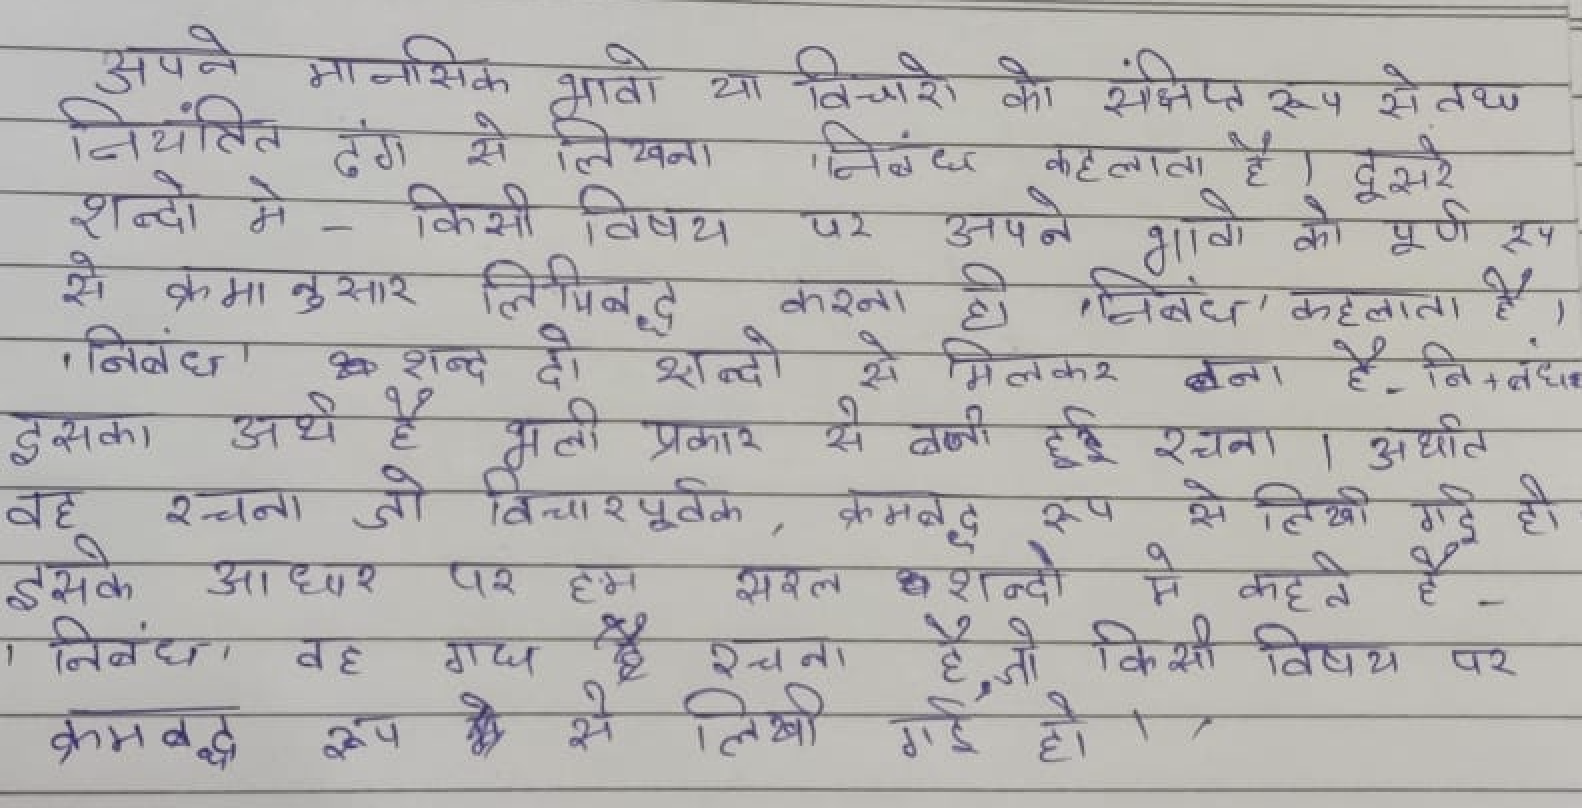 अपने मानसिक भावो या विचारो को संक्षिप्त रूप से तथा
नियंत्रित ढंग से लिखना 'निबंध कहलाता है । दूसरे
शब्दो मे - किसी विषय पर अपने भावो को पूर्ण रूप
से क्रमानुसार लिपिबद्ध करना ही 'निबंध' कहलाता है ।
'निबंध' शब्द दो शब्दो से मिलकर बना है - नि + बंध
इसका अर्थ है भली प्रकार से बनी हुई रचना । अर्थात
वह रचना जो विचारपूर्वक, क्रमबद्ध रूप से लिखी गई हो
इसके आधार पर हम सरल शब्दो मे कहते है -
'निबंध' वह गद्य रचना है, जो किसी विषय पर
क्रमबद्ध रूप से लिखी गई हो ।